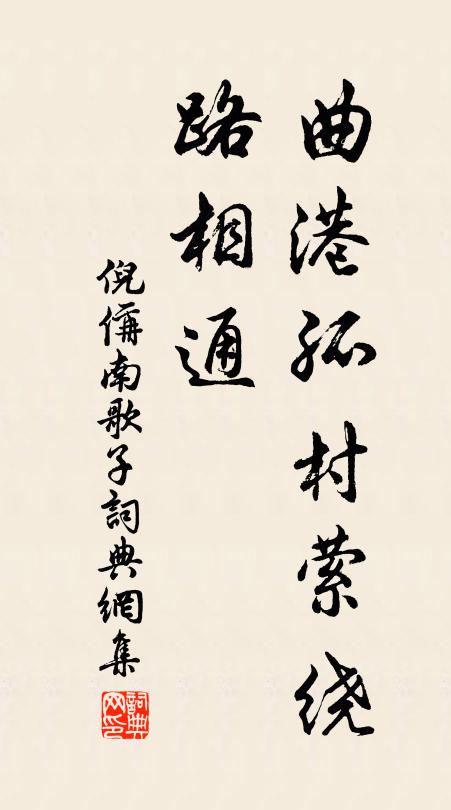 曲港孤村萦绕
路相通
倪偁南歌子詞典網集
詞典网印